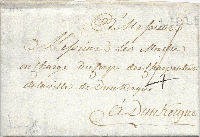 A Messieurs
Messieurs Les Maitres
en Charge du Corps des Charpentiers
de la ville de Dunkerque
4
A Dunkerque